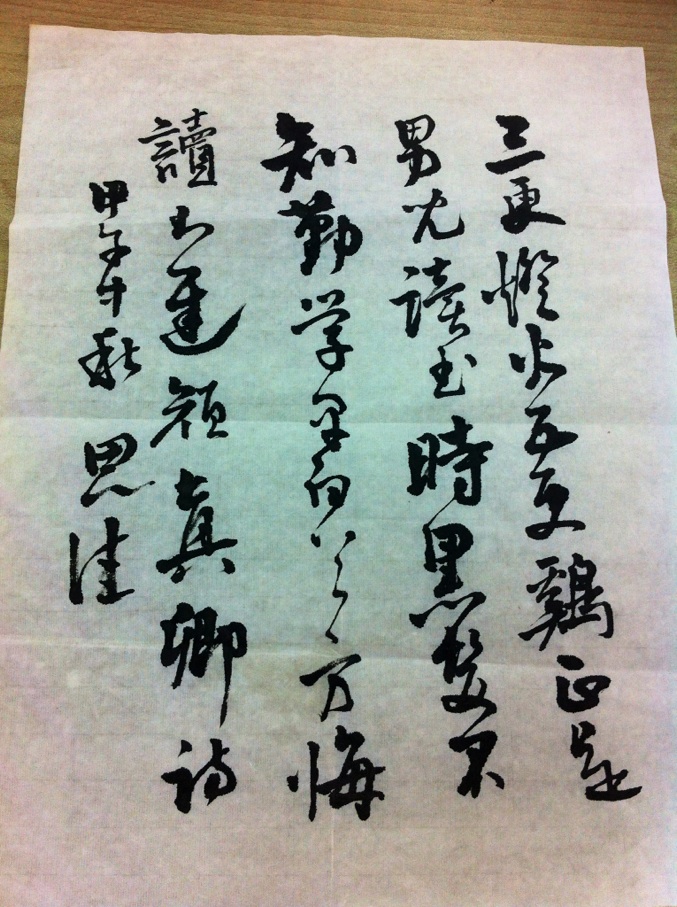 三更燈火五更鷄正是
男兒讀书時黑髮不
知勤学早白首方悔
讀书遲顔真卿诗
甲午年秋思佳